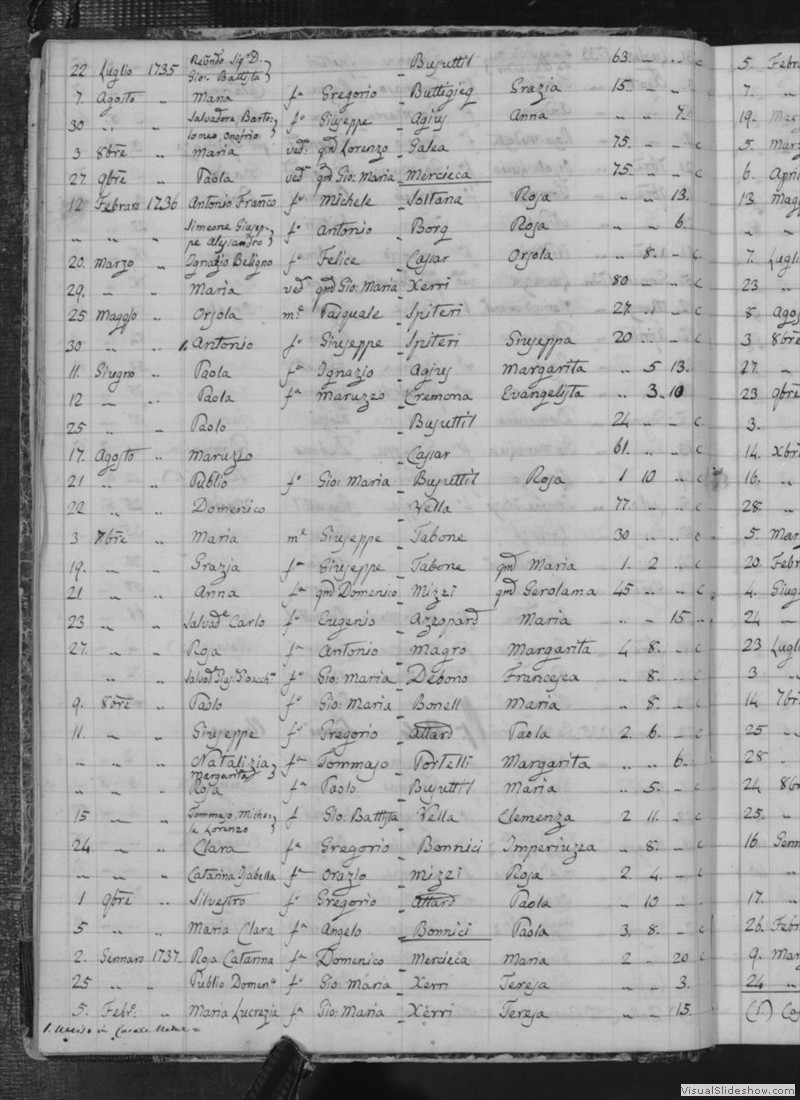 22 Luglio 1735 Revndo Sigr D. Gio: Battista Busuttil 63 .. .. c
7. Agosto .. Maria fa Gregorio Buttigieg Grazia 15 .. ..
30 .. .. Salvadore, Bartolomeo, Onofrio fo Giuseppe Agius Anna .. .. 7.
3 8bre .. Maria ved: qm Lorenzo Galea 75 .. .. c
27. 9bre .. Paola ved: qm Gio: Maria Mercieca 75 .. .. c
12 Febraro 1736 Antonio Franco fo Michele Soltana Rosa .. .. 13.
.. .. .. Simeone Giuseppe Alessandro fo Antonio Borg Rosa .. .. 6.
20. Marzo .. Ignazio Beligno fo Felice Cassar Orsola .. 8. .. c
29. .. .. Maria ved qm Gio: Maria Xerri 80 .. .. c
25 Maggio .. Orsola me Pasquale Spiteri 27 .. .. c
30 .. .. 1. Antonio fo Giuseppe Spiteri Giuseppa 20 .. .. c
11. Giugno .. Paola fa Ignazio Agius Margarita .. 5 13.
12 .. .. Paola fa Maruzzo Cremona Evangelista .. 3. 10
25 .. .. Paolo Busuttil 24 .. .. c
17. Agosto .. Maruzzo Cassar 61. .. .. c
21 .. .. Publio fo Gio: Maria Busuttil Rosa 1 10 .. c
22 .. .. Domenico Vella 77. .. .. c
3 7bre .. Maria me Giuseppe Tabone 30 .. .. c
19. .. .. Grazia fa Giuseppe Tabone qm Maria 1. 2 .. c
21 .. .. Anna fa qm Domenico Mizzi qm Gerolama 45 .. .. c
23 .. .. Salvade Carlo fo Eugenio Azzopard Maria .. .. 15 ..
27. .. .. Rosa fa Antonio Magro Margarita 4 8. .. c
.. .. fo Gio: Maria Debono Francesca .. 8. .. c
9. 8bre .. Paolo fo Gio: Maria Bonell Maria .. 8. .. c
11. .. .. Giuseppe fo Gregorio Attard Paola 2 6. .. c
.. .. .. Natalizia Margarita fa Tommaso Portelli Margarita .. .. 6.
.. .. .. Rosa fa Paolo Busuttil Maria .. 5. .. c
15 .. .. Tommaso, Michele Lorenzo f Gio: Battista Vella Clemenza 2 11. .. c
24 .. .. Clara fa Gregorio Bonnici Imperiuzza .. 8. .. c
.. .. .. Catarina Isabella fa Orazio Mizzi Rosa 2 4. .. c
1 9bre .. Silvestro fo Gregorio Attard Paola .. 10 ..
5 .. .. Maria Clara fa Angelo Bonnici Paola 3. 8. .. c
2. Gennaro 1737. Rosa Catarina fa Domenico Mercieca Maria 2 .. 20 c
25 .. .. Publio Domeno fo Gio: Maria Xerri Teresa .. .. 3.
5. Febro .. Maria Lucrezia fa Gio: Maria Xerri Teresa .. .. 15.
1. Ucciso in Casale
5. Febra
7. ..
19. Mar
5. Marz
6. April
13. Magg
7. Lugli
23 ..
8. Agos
3 8bre
27. ..
23 9bre
3.
14. Xbre
16. ..
28. ..
5. Mar
20. Febr
4. Giug
24 ..
23 Lugli
3 ..
14 7bre
25 ..
28. ..
24 8br
25. ..
16. Genn
17. ..
26. Febr
9. Mar
24 ..
(1.) Cas
VisualSlideshow.com